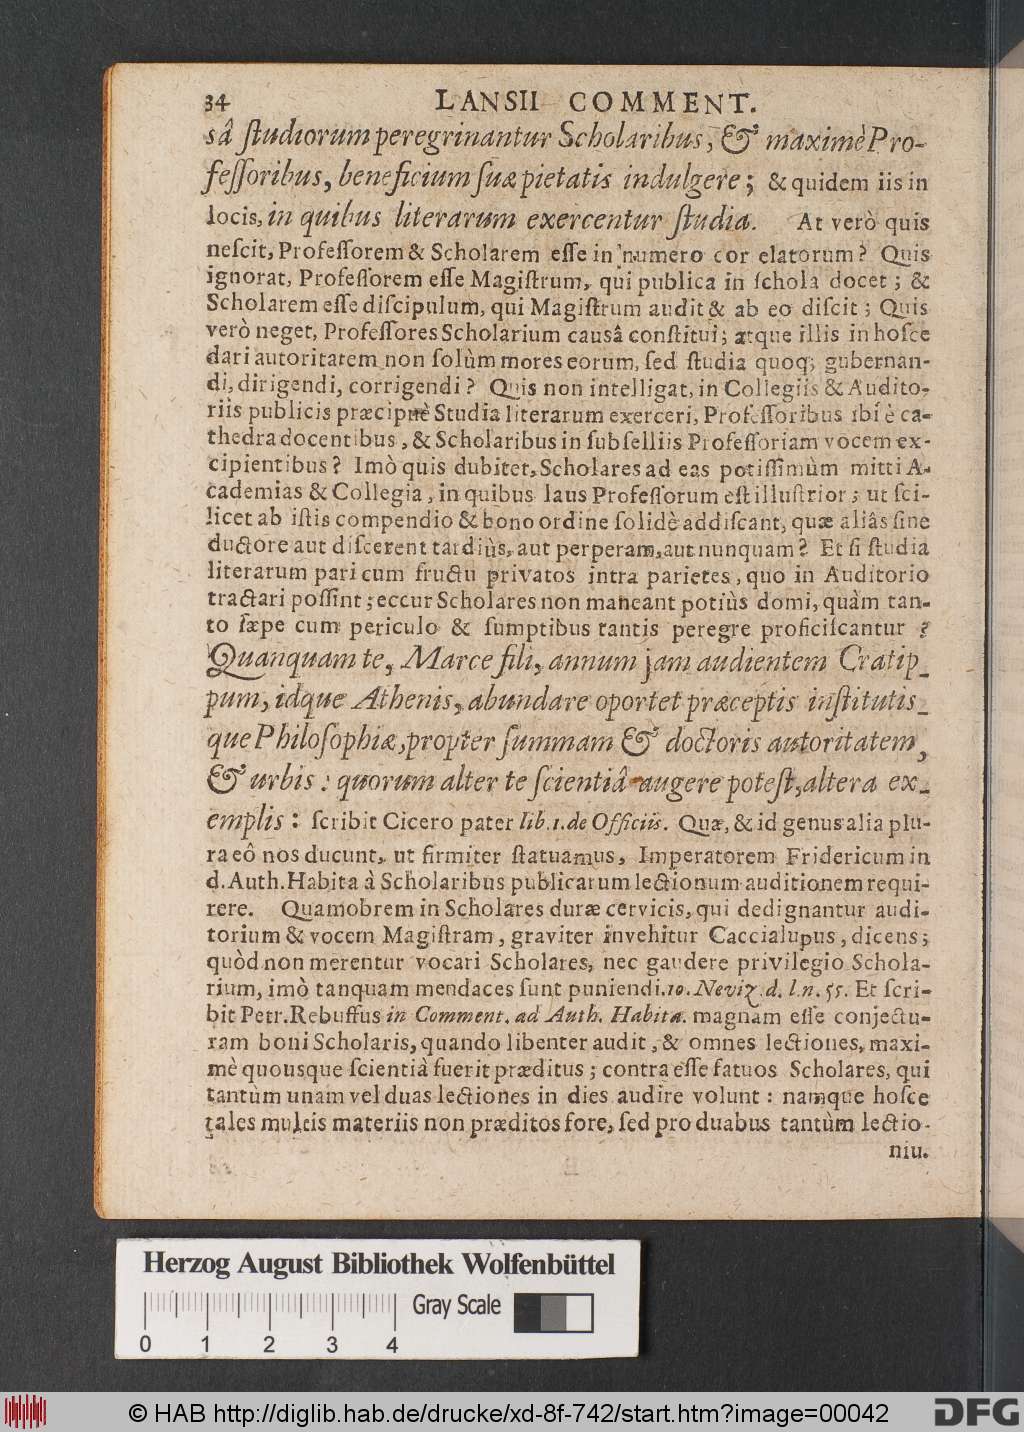 34 LANSII COMMENT.
sâ ſtudiorum peregrinantur Scholaribus, & maximè Pro-
feſſoribus, beneficium ſuæ pietatis indulgere; & quidem iis in
locis, in quibus literarum exercentur ſtudia. At verò quis
neſcit, Profeſſorem & Scholarem eſſe in numero cor elatorum? Quis
ignorat, Profeſſorem eſſe Magiſtrum, qui publica in ſchola docet; &
Scholarem eſſe diſcipulum, qui Magiſtrum audit & ab eo diſcit; Quis
verò neget, Profeſſores Scholarium causâ conſtitui; atque illis in hoſce
dari autoritatem non ſolùm mores eorum, ſed ſtudia quoq; gubernan-
di, dirigendi, corrigendi? Quis non intelligat, in Collegiis & Audito-
riis publicis præcipuè Studia literarum exerceri, Profeſſoribus ibi è ca-
thedra docentibus, & Scholaribus in ſubſelliis Profeſſoriam vocem ex-
cipientibus? Imò quis dubitet, Scholares ad eas potiſſimùm mitti A-
cademias & Collegia, in quibus laus Profeſſorum eſt illuſtrior; ut ſci-
licet ab iſtis compendio & bono ordine ſolidè addiſcant, quæ aliâs ſine
ductore aut diſcerent tardiùs, aut perperam, aut nunquam? Et ſi ſtudia
literarum pari cum fructu privatos intra parietes, quo in Auditorio
tractari poſſint; eccur Scholares non maneant potiùs domi, quàm tan-
to ſæpe cum periculo & ſumptibus tantis peregre proficiſcantur?
Quanquam te, Marce fili, annum jam audientem Cratip-
pum, idque Athenis, abundare oportet præceptis inſtitutis-
que Philoſophiæ, propter ſummam & doctoris autoritatem,
& urbis: quorum alter te ſcientiâ augere poteſt, altera ex-
emplis: ſcribit Cicero pater lib. 1. de Officiis. Quæ, & id genus alia plu-
ra eô nos ducunt, ut firmiter ſtatuamus, Imperatorem Fridericum in
d. Auth. Habita à Scholaribus publicarum lectionum auditionem requi-
rere. Quamobrem in Scholares duræ cervicis, qui dedignantur audi-
torium & vocem Magiſtram, graviter invehitur Caccialupus, dicens;
quòd non merentur vocari Scholares, nec gaudere privilegio Schola-
rium, imò tanquam mendaces ſunt puniendi. 10. Neviz. d. l. n. 55. Et ſcri-
bit Petr. Rebuffus in Comment. ad Auth. Habita. magnam eſſe conjectu-
ram boni Scholaris, quando libenter audit, & omnes lectiones, maxi-
mè quousque ſcientiâ fuerit præditus; contra eſſe fatuos Scholares, qui
tantùm unam vel duas lectiones in dies audire volunt: namque hoſce
tales multis materiis non præditos fore, ſed pro duabus tantùm lectio-
niu.
Herzog August Bibliothek Wolfenbüttel
Gray Scale
0 1 2 3 4
© HAB http://diglib.hab.de/drucke/xd-8f-742/start.htm?image=00042
DFG